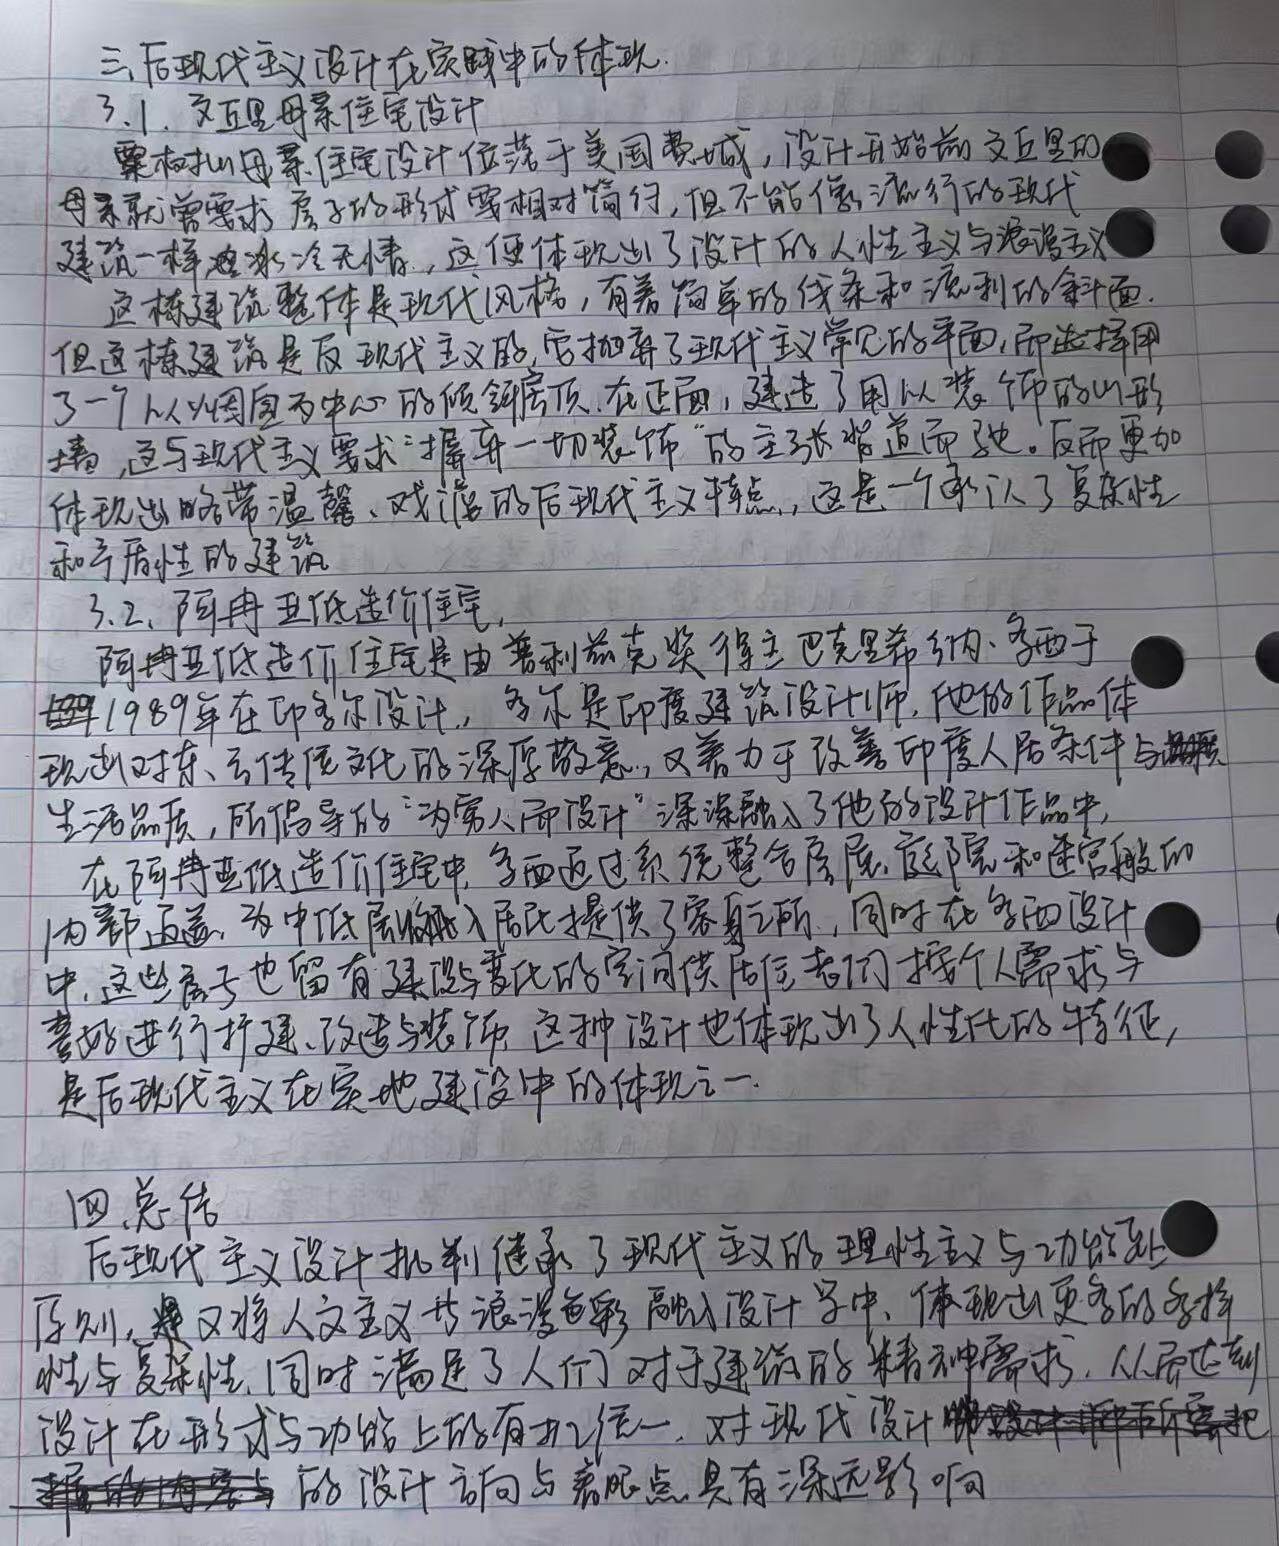 三、后现代主义设计在实践中的体现.
3.1. 文丘里母亲住宅设计
栗树山母亲住宅设计位落于美国费城，设计开始前文丘里的
母亲就曾要求房子的形式要相对简行，但不能像流行的现代
建筑一样冰冷无情，这便体现出了设计的人性主义与浪漫主义
这栋建筑整体是现代风格，有着简单的线条和流利的斜面.
但这栋建筑是反现代主义的，它抛弃了现代主义常见的平面，而选择用
了一个以烟囱为中心的倾斜房顶.在正面，建造了用以装饰的山形
墙，这与现代主义要求“摒弃一切装饰”的主张背道而驰。反而更加
体现出略带温馨、戏谑的后现代主义特点，这是一个承认了复杂性
和矛盾性的建筑
3.2. 阿冉亚低造价住宅.
阿冉亚低造价住宅是由普利兹克奖得主巴克里希纳·多西于
1989年在印多尔设计，多尔是印度建筑设计师.他的作品体
现出对东、方传统文化的深厚敬意，又着力于改善印度人居条件与
生活品质，所倡导的“为穷人而设计”深深融入了他的设计作品中，
在阿冉亚低造价住宅中，多西通过系统整合房屋、庭院和迷宫般的
内部通道，为中低层收入居民提供了容身之所，同时在多西设计
中，这些房子也留有建设与变化的空间供居住者们按个人需求与
喜好进行扩建、改造与装饰，这种设计也体现出了人性化的特征，
是后现代主义在实地建设中的体现之一.
四、总结
后现代主义设计批判继承了现代主义的理性主义与功能至上
原则，又将人文主义与浪漫色彩融入设计学中，体现出更多的多样
性与复杂性，同时满足了人们对于建筑的精神需求，从而达到
设计在形式与功能上的有机统一.对现代设计
的设计方向与着眼点具有深远影响